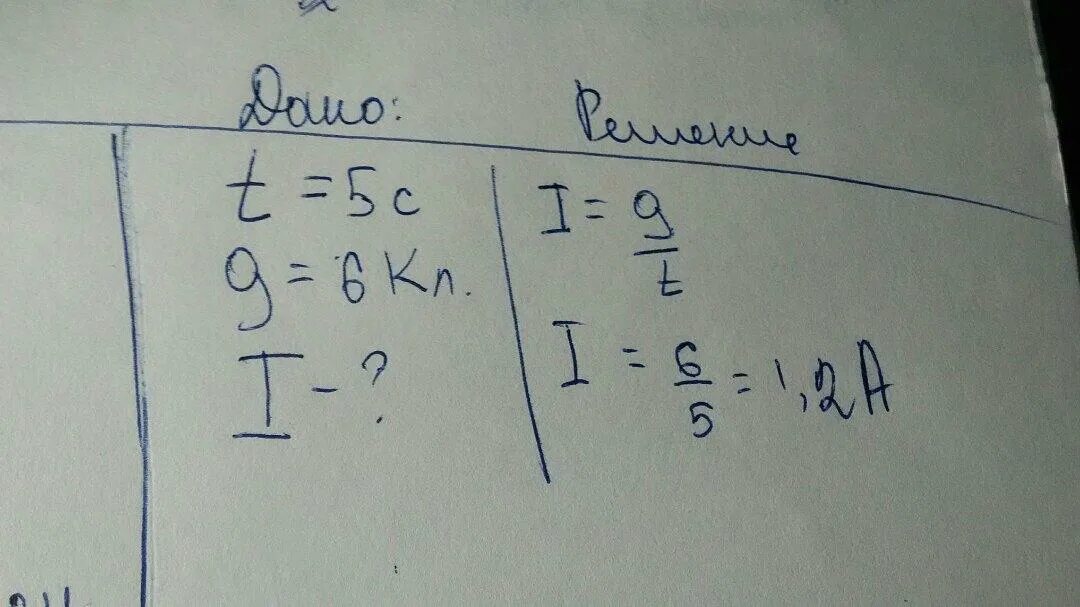 Дано:
t = 5 с
q = 6 Кл.
I - ?
Решение
I = q/t
I = 6/5 = 1,2 A